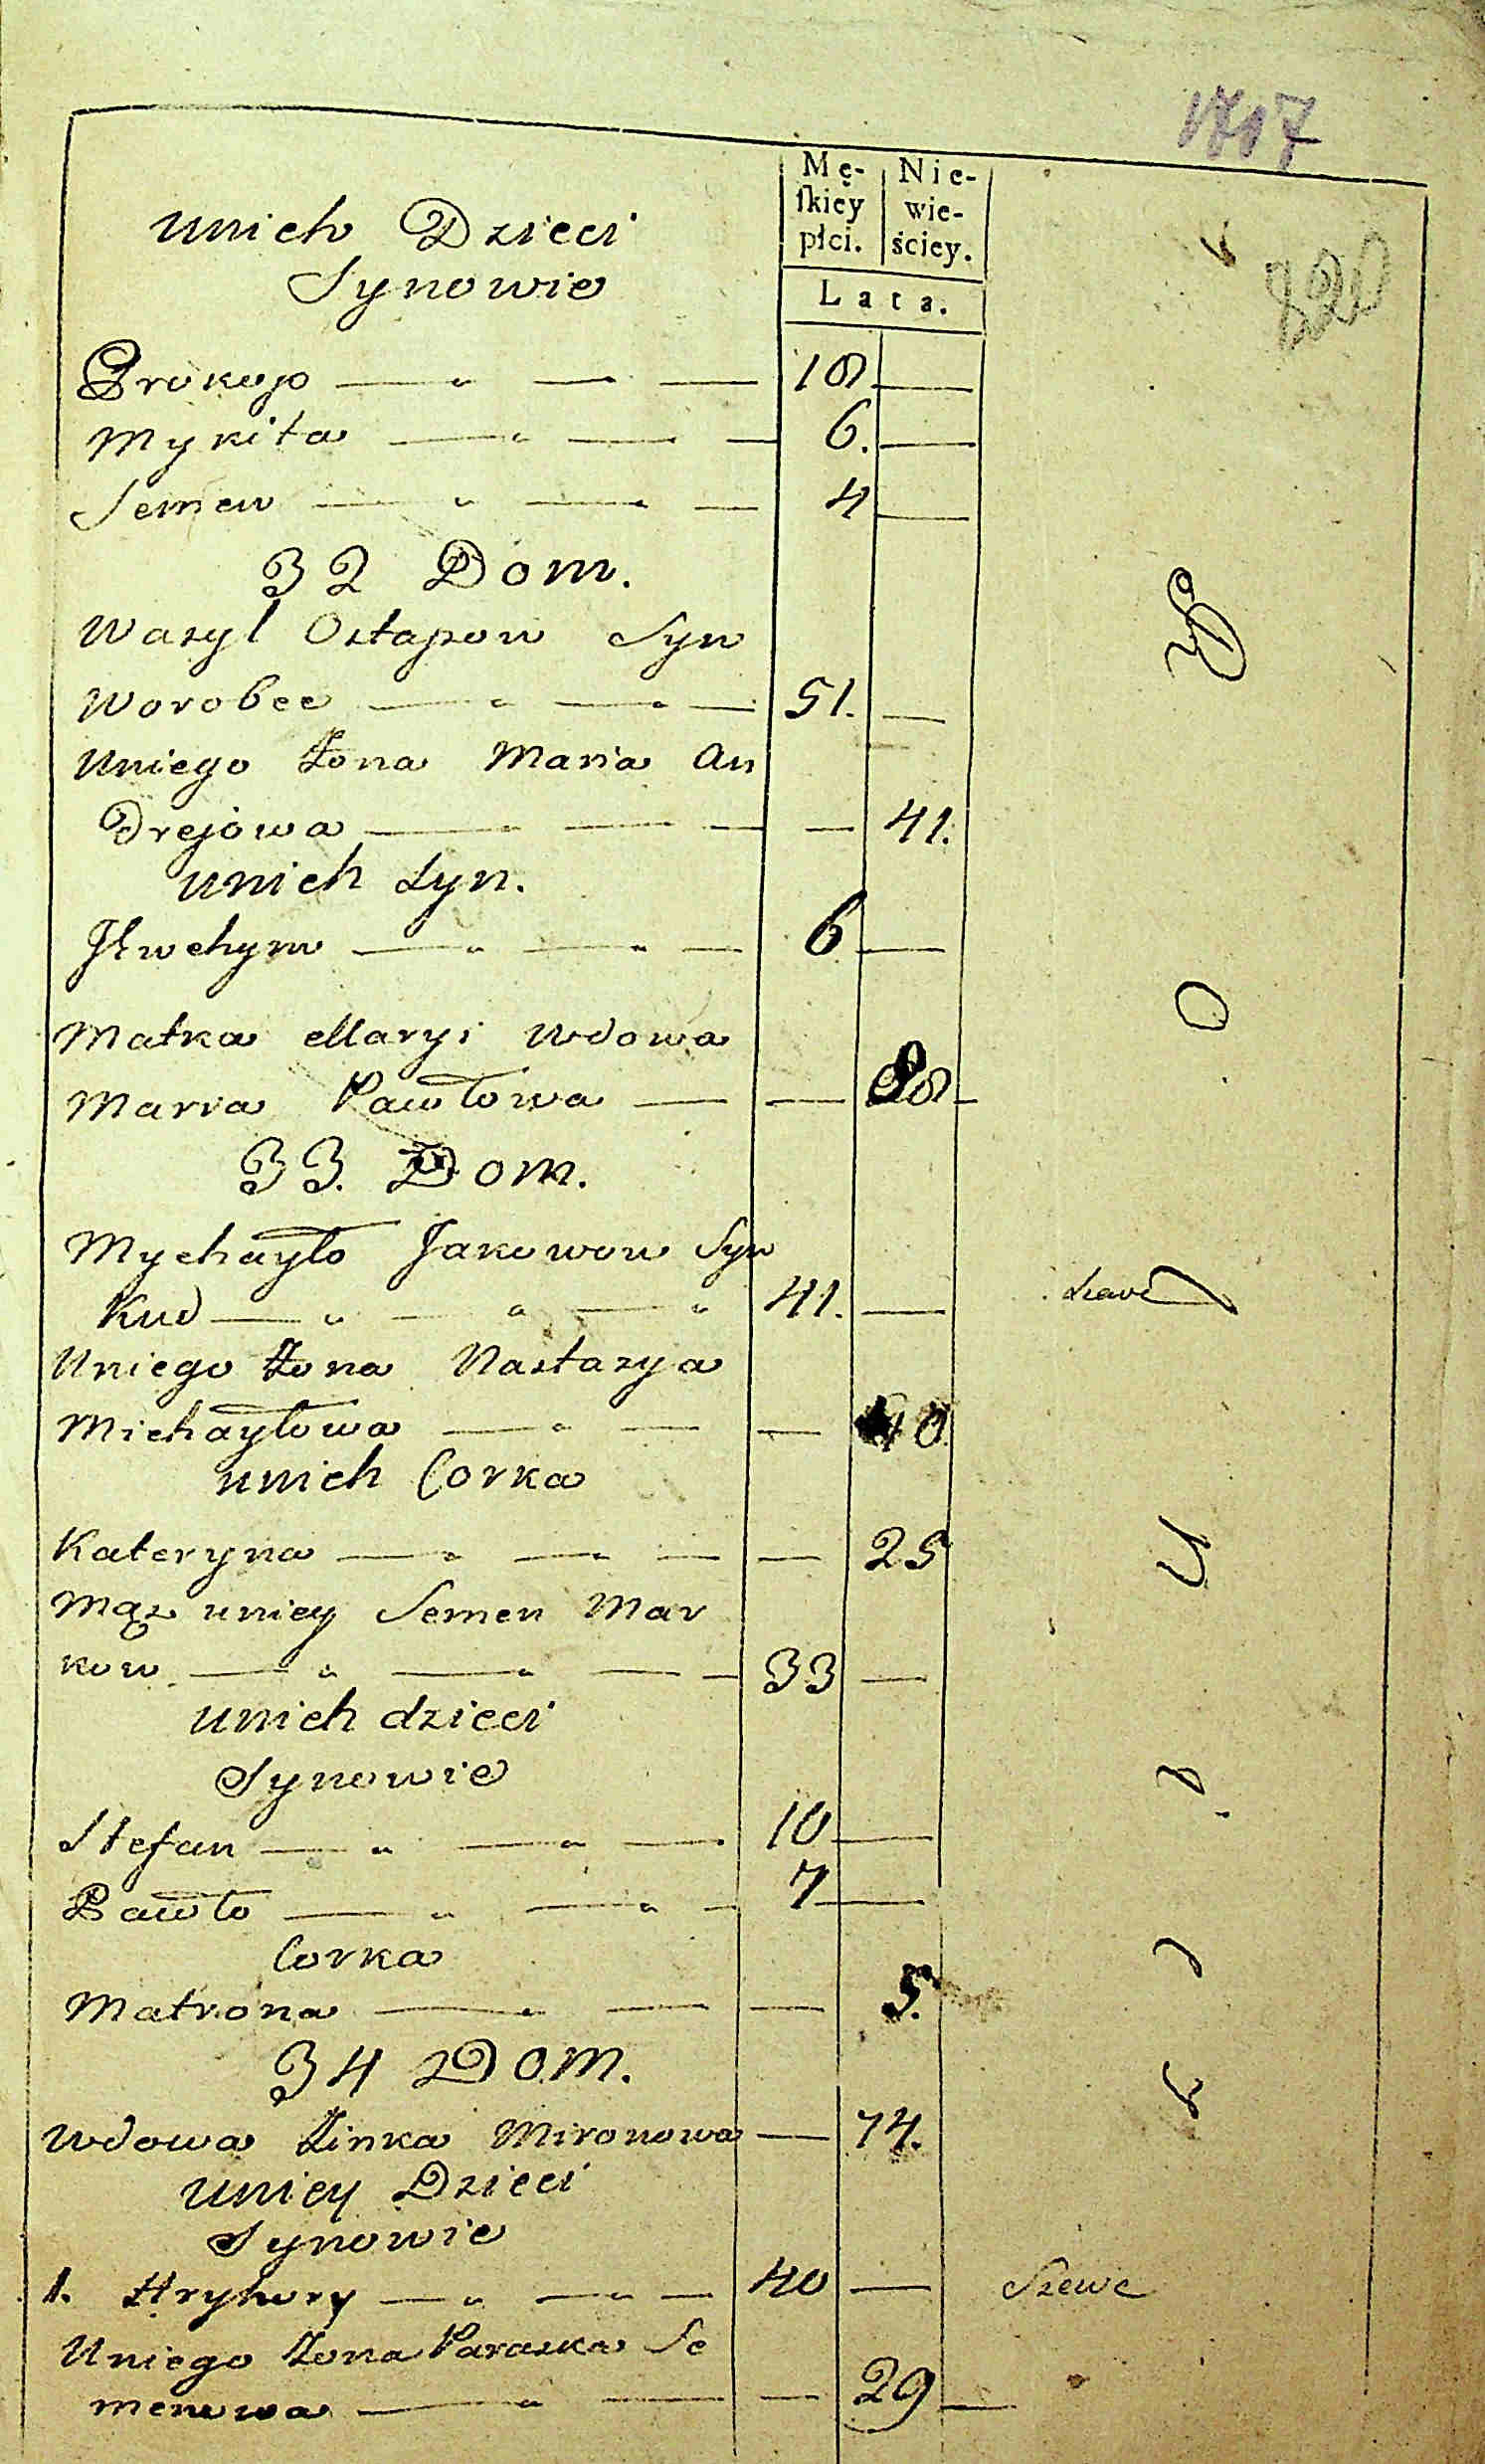 1717
820
Mę- Nie-
skiey wie-
płci. ściey.
Lata.
unich Dzieci
Synowie
Prokop 18
Mykita 6.
Semen 4
32 Dom.
Wasyl Ostapow Syn
Worobec 51.
Uniego Żona Maria An
Drejowa 41.
unich Syn.
Matka Maryi Wdowa
Maria Pawłowa
33. Dom.
Mychayło Jakowow Syn
Kud 41.
Uniego Żona Nastazya
Michayłowa 40.
unich Corka
Kateryna 25
Mąż uniey Semen Mar
kow 33
unich dzieci
Synowie
Stefan 10
Pawło 7
Corka
Matrona 5.
34 Dom.
Wdowa Zinka Mironowa 74.
uniey Dzieci
Synowie
1. Hryhory 40 Szewc
Uniego Żona Paraska Se
menowa 29